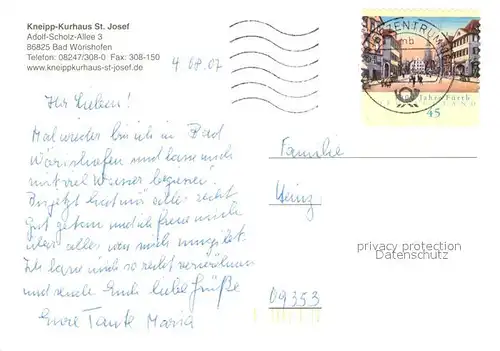 Kneipp-Kurhaus St. Josef
Adolf-Scholz-Allee 3
86825 Bad Wörishofen
Telefon: 08247/308-0 Fax: 308-150
www.kneippkurhaus-st-josef.de
4.08.07
BRIEFZENTRUM
Jahre Fürth
45
Ihr Lieben!
Mal wieder bin ich in Bad
Wörishofen und kann mich
mit viel Wasser begiesen.
Bis jetzt hat mir alles recht
gut getan und ich freue mich
über alles was mich umgibt.
Ich kann mich so recht verwöhnen
und sende Euch liebe Grüße
Eure Tante Maria
Familie
Heinz
privacy protection
Datenschutz
09353